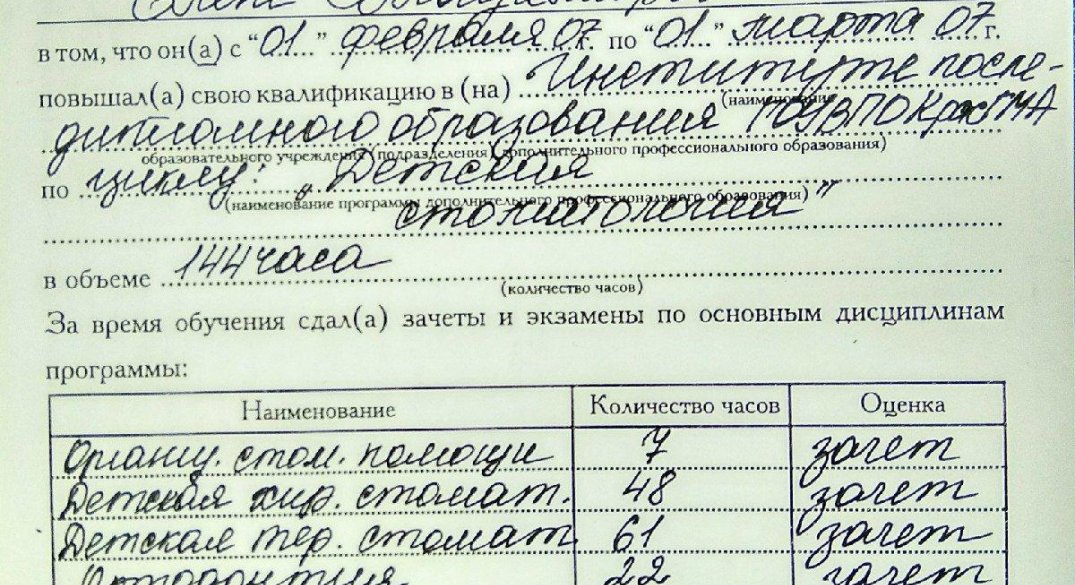 в том, что он(а) с "01..." февраля 07 г. по "01..." марта 07 г.
повышал(а) свою квалификацию в (на) Институте после-
(наименование
дипломного образования ГОУВПО КрасГМА
образовательного учреждения (подразделения) дополнительного профессионального образования)
по циклу: "Детская
(наименование программы дополнительного профессионального образования)
стоматология"
в объеме 144 часа
(количество часов)
За время обучения сдал(а) зачеты и экзамены по основным дисциплинам
программы:
Наименование Количество часов Оценка
Органи. стом. помощи 7 зачет
Детская хир. стомат. 48 зачет
Детская тер. стомат. 61 зачет
Ортодонтия 22 зачет